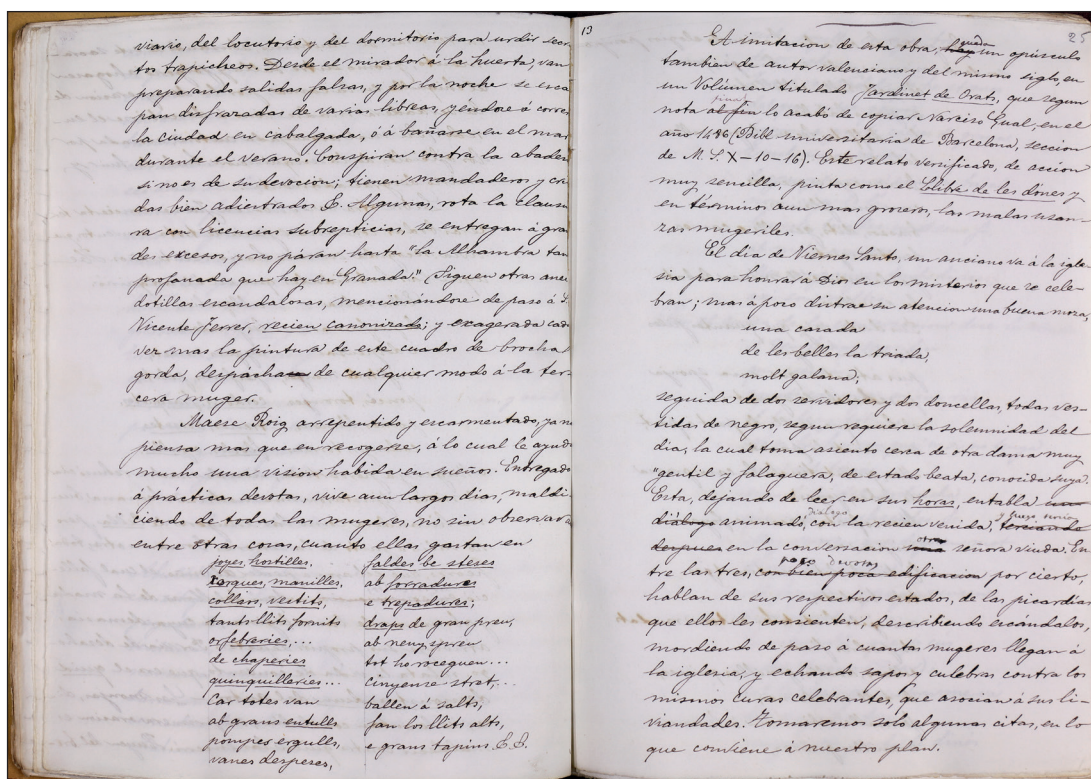 viario, del locutorio y del dormitorio para urdir secre
tos trapicheos. Desde el mirador á la huerta, van
preparando salidas falsas, y por la noche se esca
pan disfrazadas de varias libreas, yéndose á correr
la ciudad en cabalgada, ó á bañarse en el mar
durante el verano. Conspiran contra la abadesa
si no es de su devocion; tienen mandaderos y cria
das bien adiestrados &. Algunas, rota la clausu
ra con licencias subrepticias, se entregan á gran
des excesos, y no paran hasta "la Alhambra tan
profanada que hay en Granada." (Siguen otras anec
dotillas escandalosas, mencionándose de paso á S.
Vicente Ferrer, recien canonizado; y exagerada cada
vez mas la pintura de este cuadro de brocha
gorda, despácha de cualquier modo á la ter
cera muger.
Maese Roig arrepentido y escarmentado, ya no
piensa mas que en recogerse, á lo cual le ayuda
mucho una vision habida en sueños. Entregado
á prácticas devotas, vive aun largos dias, maldi
ciendo de todas las mugeres, no sin observar
entre otras cosas, cuanto ellas gastan en
joyes, hostilles...
xarques, manilles,
collars, vestits,
tants llits fornits
orfebreries,...
de chaperies
quinquilleries...
Car totes van
ab grans entulls
pompes ergulls,
vanes despeses,
faldes be steses
ab forradures
e trepadures;
draps de gran preu,
ab neny spreu
tot ho roceguen...
cinyense stret,...
ballen á salts,
fan los llits alts,
e grans tapins &. &.
13
25
A imitacion de esta obra, hay un opúsculo
puede
tambien de autor valenciano y del mismo siglo, en
un Volúmen titulado Jardinet de Orats, que segun
nota al fin lo acabó de copiar Narciso Gual, en el
final
año 1486 (Bibl universitaria de Barcelona, seccion
de M. S. X-10-16). Este relato versificado, de acción
muy sencilla, pinta como el Llibre de les dones y
en términos aun mas groseros, las malas usan
zas mugeriles.
El dia de Viernes Santo, un anciano va á la igle
sia para honrar á Dios en los misterios que se cele-
bran; mas á poco distrae su atencion una buena moza,
una casada
de les belles la triada,
molt galana;
seguida de dos servidores y dos doncellas, todas ves
tidas de negro, segun requiere la solemnidad del
dia, la cual toma asiento cerca de otra dama muy
"gentil y falaguera, de estado beata, conocida suya.
Esta, dejando de leer en sus horas, entabla un
diálogo animado, con la recien venida, terciando
Diálogo
despues en la conversacion una señora viuda. En
otra
tre las tres, con bien poca edificacion por cierto
poco devotas
hablan de sus respectivos estados, de las picardias
que ellos les consienten, describiendo escándalos,
mordiendo de paso á cuantas mugeres llegan á
la iglesia, y echando sapos y culebras contra los
mismos curas celebrantes, que asocian á sus li
viandades. Tomaremos solo algunas citas, en lo
que conviene á nuestro plan.